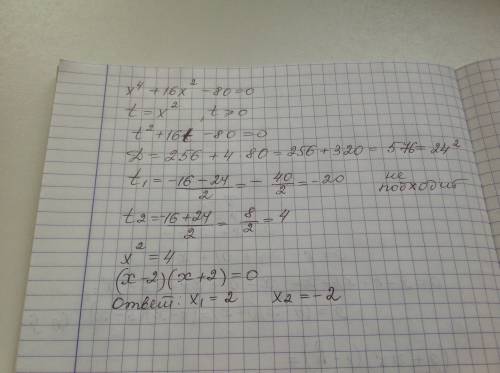 x⁴ + 16x² - 80 = 0
t = x² , t > 0
t² + 16t - 80 = 0
D = 256 + 4 80 = 256 + 320 = 576 = 24²
t₁ = (-16 - 24)/2 = - 40/2 = -20 не подходит
t₂ = (-16 + 24)/2 = 8/2 = 4
x² = 4
(x - 2)(x + 2) = 0
Ответ: x₁ = 2 x₂ = -2